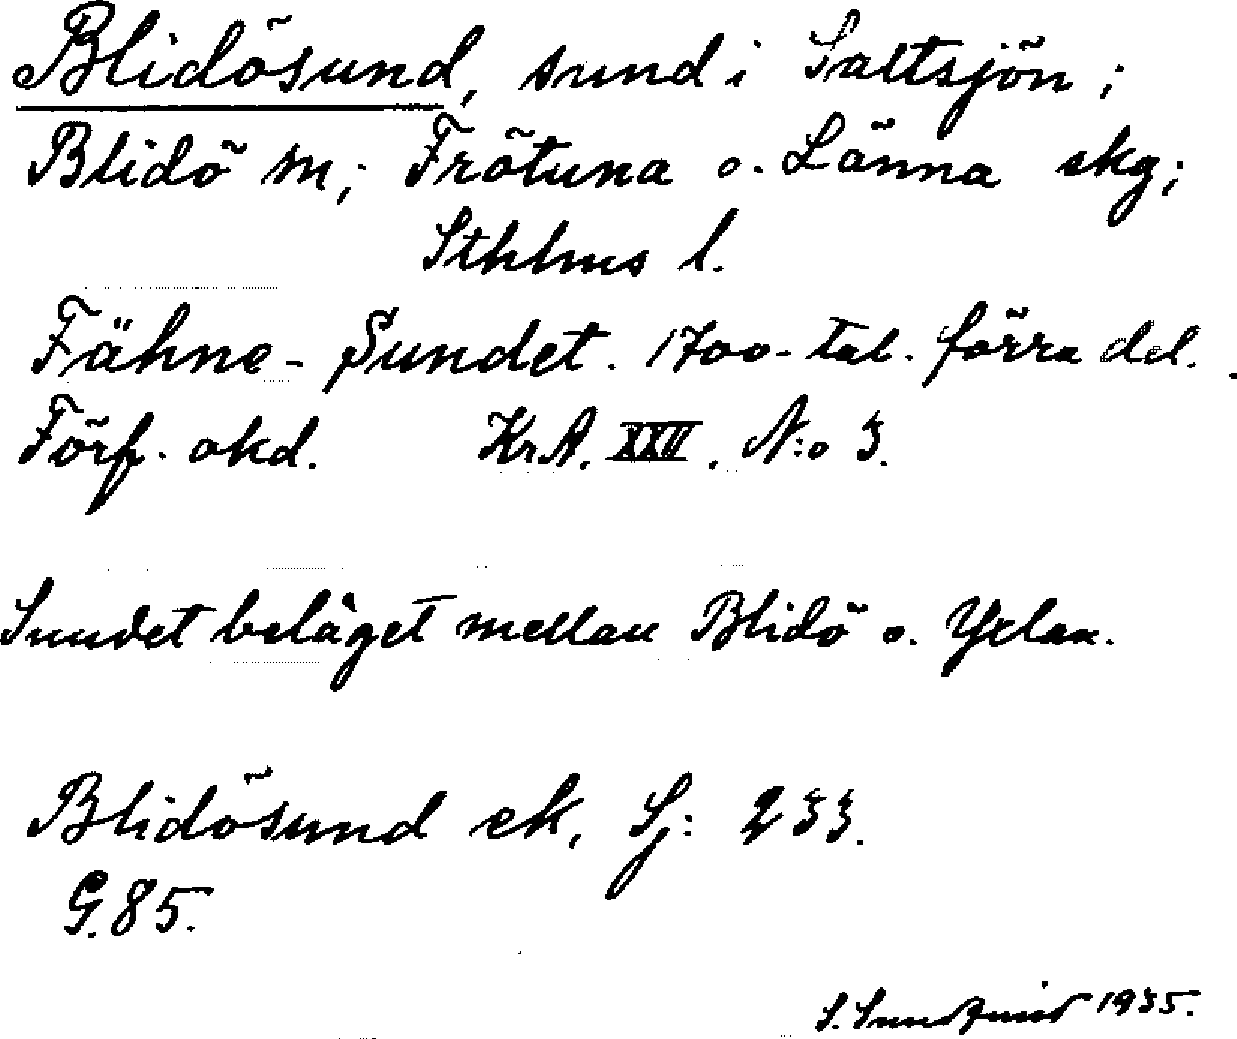 Blidösund, sund i Saltsjön;
Blidö sn; Frötuna o. Länna skg;
Sthlms l.
Fähne-Sundet. 1700-tal. förra del.
Förf. okd. KrA. XXII. N:o 3.
Sundet beläget mellan Blidö o. Yxlan.
Blidösund ek, Sj: 233.
G. 85.
S. Sundquist 1935.